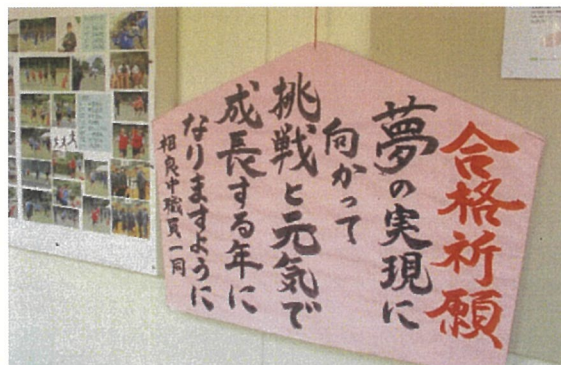 合格祈願
夢の実現に
向かって
挑戦と元気で
成長する年に
なりますように
相良中職員一同